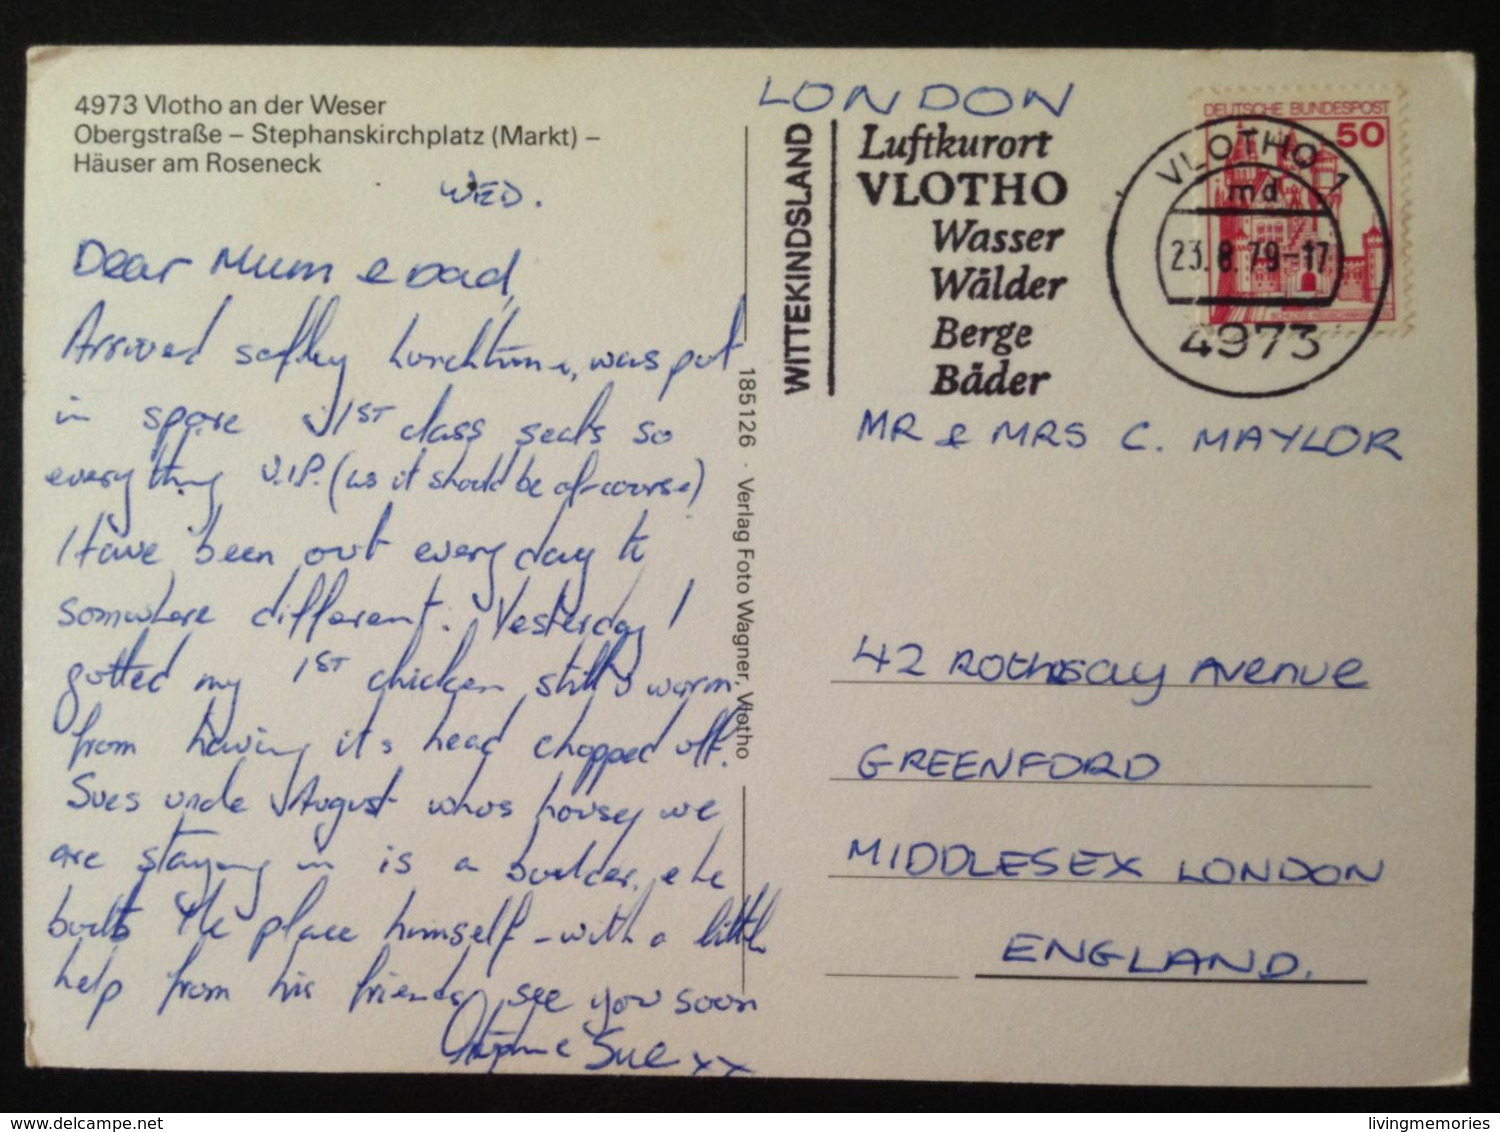 4973 Vlotho an der Weser
Obergstraße – Stephanskirchplatz (Markt) –
Häuser am Roseneck
WED.
Dear Mum & Dad,
Arrived safley lunchtime, was put
in spare 1ST class seats so
everything V.I.P. (as it should be of-course)
I have been out every day to
somwhere different. Yesterday I
gutted my 1ST chicken still warm
from having it's head chopped off.
Sues uncle August who's housey we
are staying in is a builder, & he
built the place himself - with a little
help from his friends, see you soon
Sue xx
185126 · Verlag Foto Wagner, Vlotho
LONDON
WITTEKINDSLAND
Luftkurort
VLOTHO
Wasser
Wälder
Berge
Bäder
DEUTSCHE BUNDESPOST
50
VLOTHO 1
md
23.8.79-17
4973
MR & MRS C. MAYLOR
42 ROTHESAY AVENUE
GREENFORD
MIDDLESEX LONDON
ENGLAND.
livingmemories